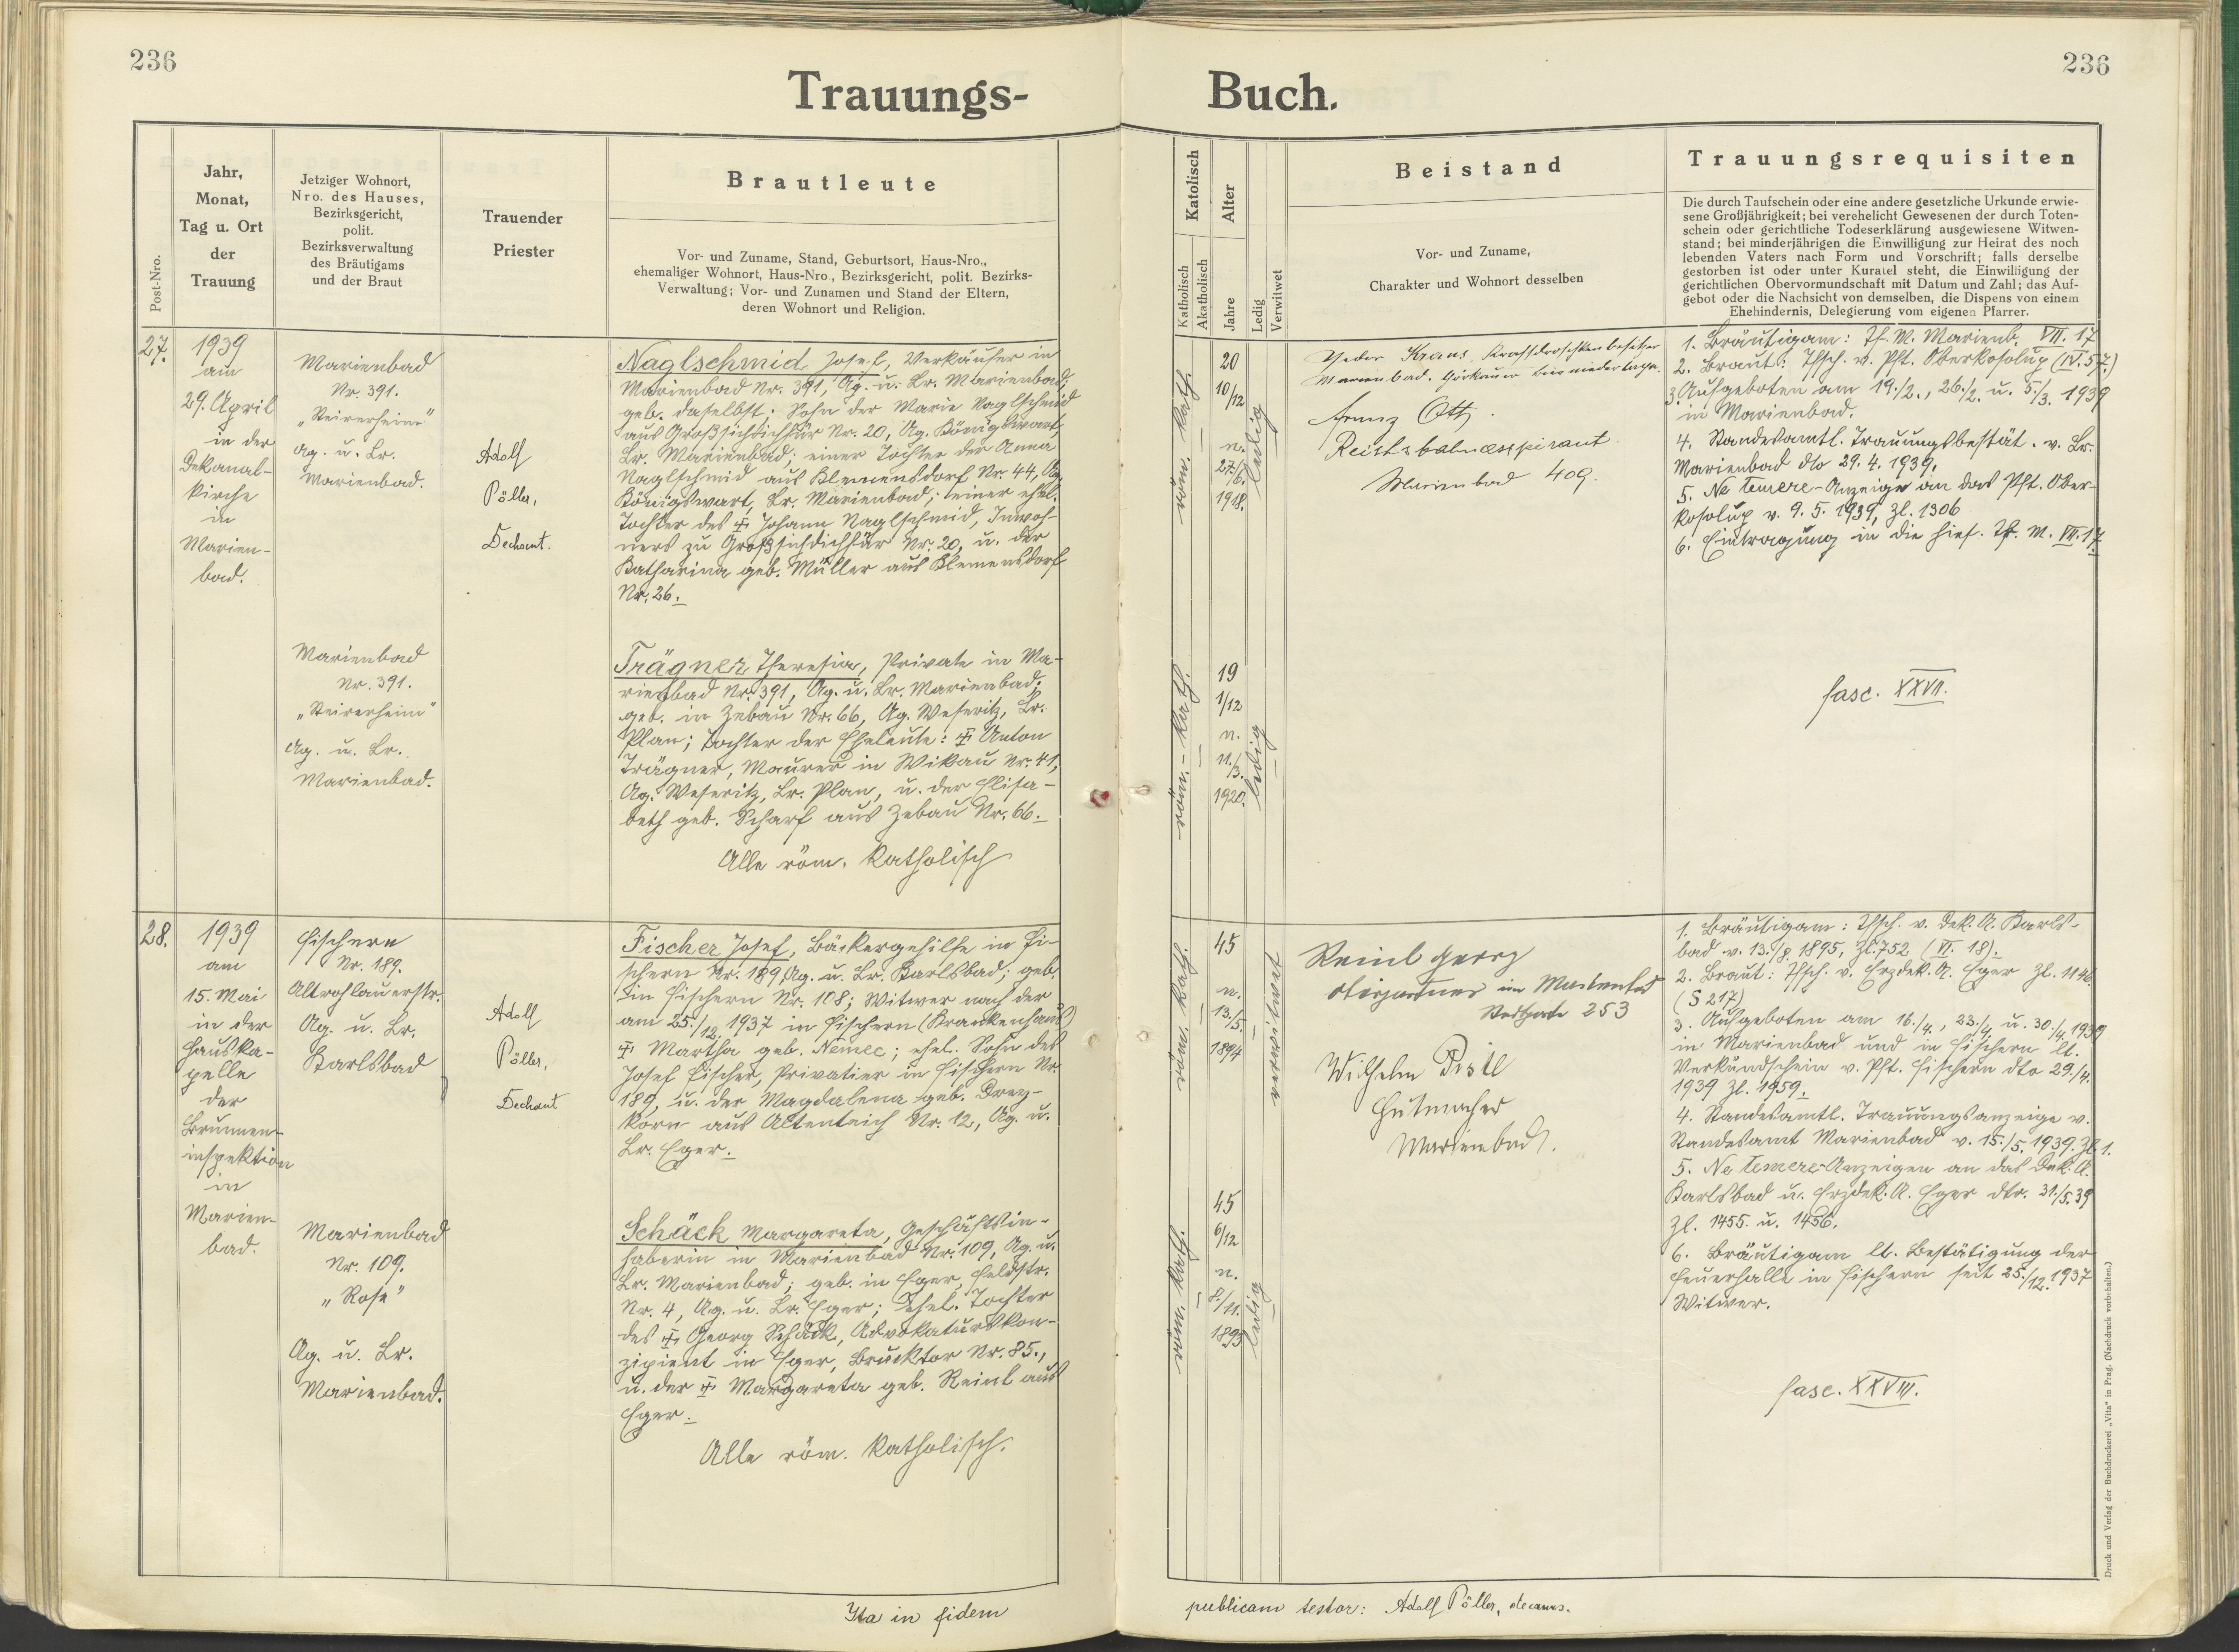 236
236
Trauungs-
Buch.
Post-Nro.
Jahr,
Monat,
Tag u. Ort
der
Trauung
Jetziger Wohnort,
Nro. des Hauses,
Bezirksgericht,
polit.
Bezirksverwaltung
des Bräutigams
und der Braut
Trauender
Priester
Brautleute
Vor- und Zuname, Stand, Geburtsort, Haus-Nro.,
ehemaliger Wohnort, Haus-Nro., Bezirksgericht, polit. Bezirks-
Verwaltung; Vor- und Zunamen und Stand der Eltern,
deren Wohnort und Religion.
Katolisch
Katholisch
Akatholisch
Alter
Jahre
Ledig
Verwitwet
Beistand
Vor- und Zuname,
Charakter und Wohnort desselben
Trauungsrequisiten
Die durch Taufschein oder eine andere gesetzliche Urkunde erwie-
sene Großjährigkeit; bei verehelicht Gewesenen der durch Toten-
schein oder gerichtliche Todeserklärung ausgewiesene Witwen-
stand; bei minderjährigen die Einwilligung zur Heirat des noch
lebenden Vaters nach Form und Vorschrift; falls derselbe
gestorben ist oder unter Kuratel steht, die Einwilligung der
gerichtlichen Obervormundschaft mit Datum und Zahl; das Auf-
gebot oder die Nachsicht von demselben, die Dispens von einem
Ehehindernis, Delegierung vom eigenen Pfarrer.
27.
1939
am
29. April
in der
Dekanal-
kirche
in
Marien-
bad.
Marienbad
Nr. 391.
"Steirerheim"
Ag. u. Lr.
Marienbad.
Adolf
Pöller,
Dechant.
Naglschmid Josef, Verkäufer in
Marienbad Nr. 391, Ag. u. Lr. Marienbad;
geb. daselbst; Sohn der Marie Naglschmid
aus Großsichdichfür Nr. 20, Ag. Königswart,
Lr. Marienbad; einer Tochter der Anna
Naglschmid aus Klemensdorf Nr. 44, Ag.
Königswart, Lr. Marienbad; einer ehel.
Tochter des ✝ Johann Naglschmid, Inwoh-
ners zu Großsichdichfür Nr. 20, u. der
Katharina geb. Müller aus Klemensdorf
Nr. 26.
Marienbad
Nr. 391.
"Steirerheim"
Ag. u. Lr.
Marienbad.
Trägner Theresia, Private in Ma-
rienbad Nr. 391, Ag. u. Lr. Marienbad;
geb. in Zebau Nr. 66, Ag. Weseritz, Lr.
Plan; Tochter der Eheleute: ✝ Anton
Trägner, Maurer in Wikau Nr. 41,
Ag. Weseritz, Lr. Plan, u. der Elisa-
beth geb. Scharf aus Zebau Nr. 66.
Alle röm. katholisch
röm. kath.
20
10/12
n.
27./6.
1918.
ledig
röm.-kath.
19
1/12
n.
11./3.
1920.
ledig
Kraus Kraftdroschkenbesitzer
Marienbad. Görkauer Bierniederlage.
Franz Ott
Reichsbahnaspirant.
Marienbad 409.
1. Bräutigam: Tf. M. Marienb. VII. 17
2. Braut: Tfsch. v. Pft. Oberkosolup (IV. 57.)
3. Aufgeboten am 19./2., 26./2. u. 5./3. 1939
in Marienbad.
4. Standesamtl. Trauungsbestät. v. Lr.
Marienbad dto 29. 4. 1939.
5. Ne temere-Anzeige an das Pft. Ober-
kosolup v. 9. 5. 1939, Zl. 1306
6. Eintragung in die hies. Tf. M. VII. 17.
fasc. XXVII.
28.
1939
am
15. Mai
in der
Hauska-
pelle
der
Brunnen-
inspektion
in
Marien-
bad.
Fischern
Nr. 189.
Altrohlauerstr.
Ag. u. Lr.
Karlsbad
Adolf
Pöller,
Dechant
Fischer Josef, Bäckergehilfe in Fi-
schern Nr. 189, Ag. u. Lr. Karlsbad; geb.
in Fischern Nr. 108; Witwer nach der
am 25./12. 1937 in Fischern (Krankenhaus)
✝ Martha geb. Nemec; ehel. Sohn des
Josef Fischer, Privatier in Fischern Nr.
189, u. der Magdalena geb. Drey-
korn aus Altenteich Nr. 12, Ag. u.
Lr. Eger.
Marienbad
Nr. 109.
"Rose"
Ag. u. Lr.
Marienbad.
Schäck Margareta, Geschäftsin-
haberin in Marienbad Nr. 109, Ag. u.
Lr. Marienbad; geb. in Eger, Feldstr.
Nr. 4, Ag. u. Lr. Eger; ehel. Tochter
des ✝ Georg Schäck, Advokaturskon-
zipient in Eger, Brucktor Nr. 85.,
u. der ✝ Margareta geb. Reinl aus
Eger.
Alle röm. katholisch.
röm. kath.
45
n.
13./5.
1894
verwitwet
röm. kath.
45
6/12
n.
8./11.
1893
ledig
Reinl Georg
in Marienbad
253
Wilhelm Pistl
Hutmacher
Marienbad.
1. Bräutigam: Tfsch. v. Dek. A. Karls-
bad v. 13./8. 1895, Zl. 752 (VI. 18).
2. Braut: Tfsch. v. Erzdek. A. Eger Zl. 1146.
(S 217)
3. Aufgeboten am 16./4., 23./4. u. 30./4. 1939
in Marienbad und in Fischern lt.
Verkündschein v. Pft. Fischern dto 29./4.
1939 Zl. 1959.
4. Standesamtl. Trauungsanzeige v.
Standesamt Marienbad v. 15./5. 1939. Zl. 1.
5. Ne temere-Anzeigen an das Dek. A.
Karlsbad u. Erzdek. A. Eger dto. 31./5. 39
Zl. 1455. u. 1456.
6. Bräutigam lt. Bestätigung der
Feuerhalle in Fischern seit 25./12. 1937
Witwer.
fasc. XXVIII.
Ita in fidem
publicam testor: Adolf Pöller, decanus.
Druck und Verlag der Buchdruckerei „Vita" in Prag. (Nachdruck vorbehalten.)